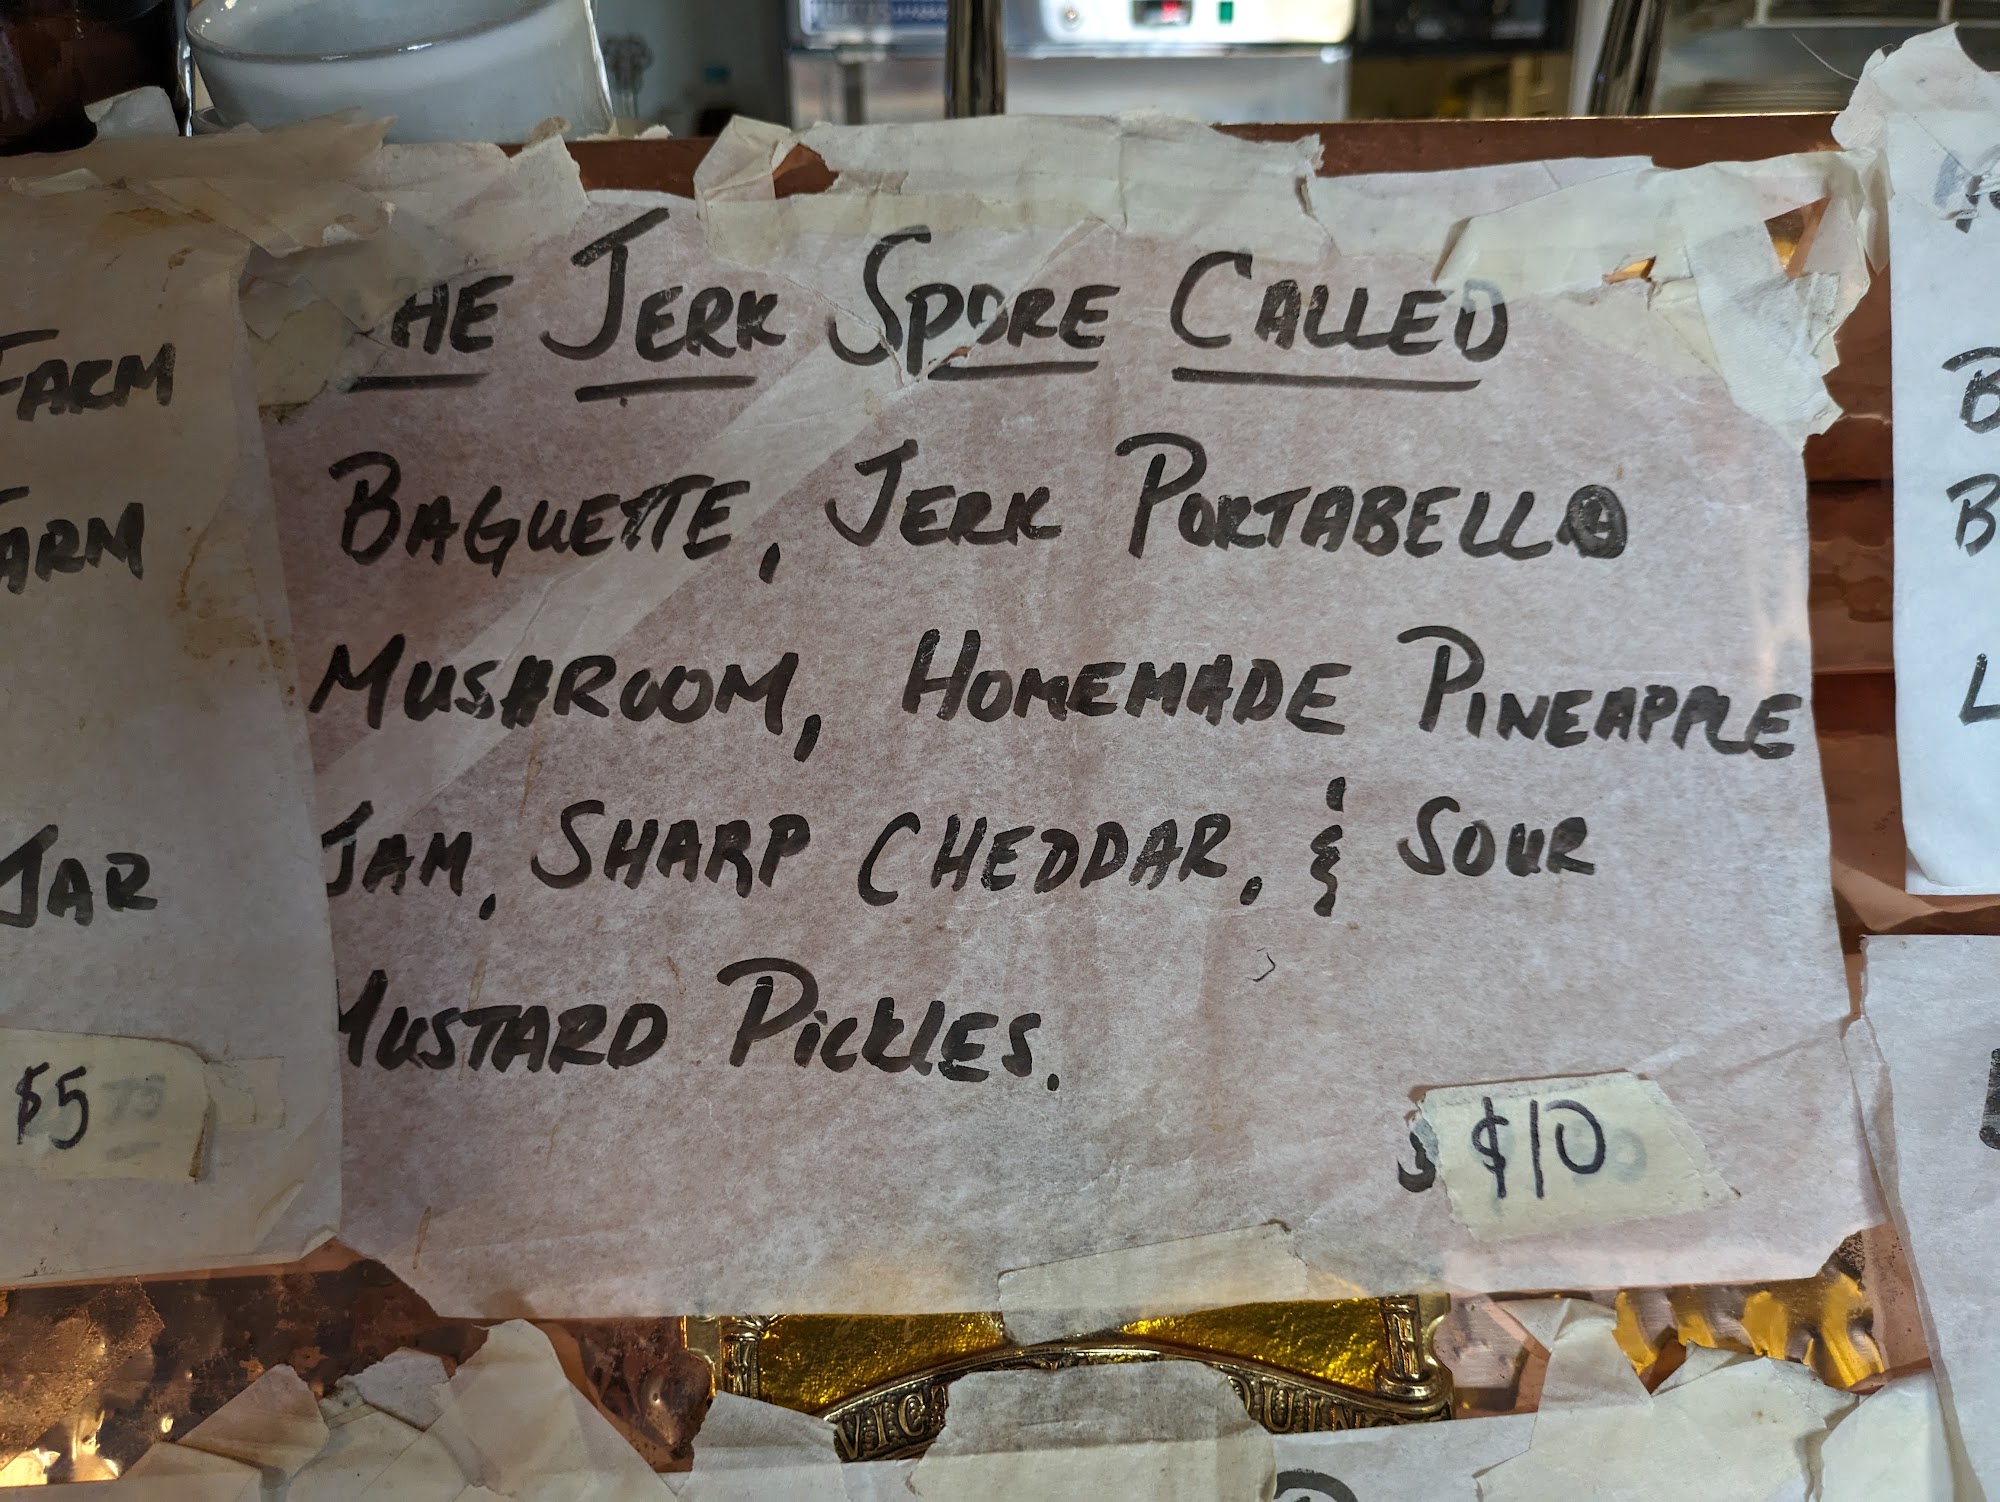 THE JERK SPORE CALLED
BAGUETTE, JERK PORTABELLO
MUSHROOM, HOMEMADE PINEAPPLE
JAM, SHARP CHEDDAR, & SOUR
MUSTARD PICKLES.
$10
FARM
FARM
JAR
$5